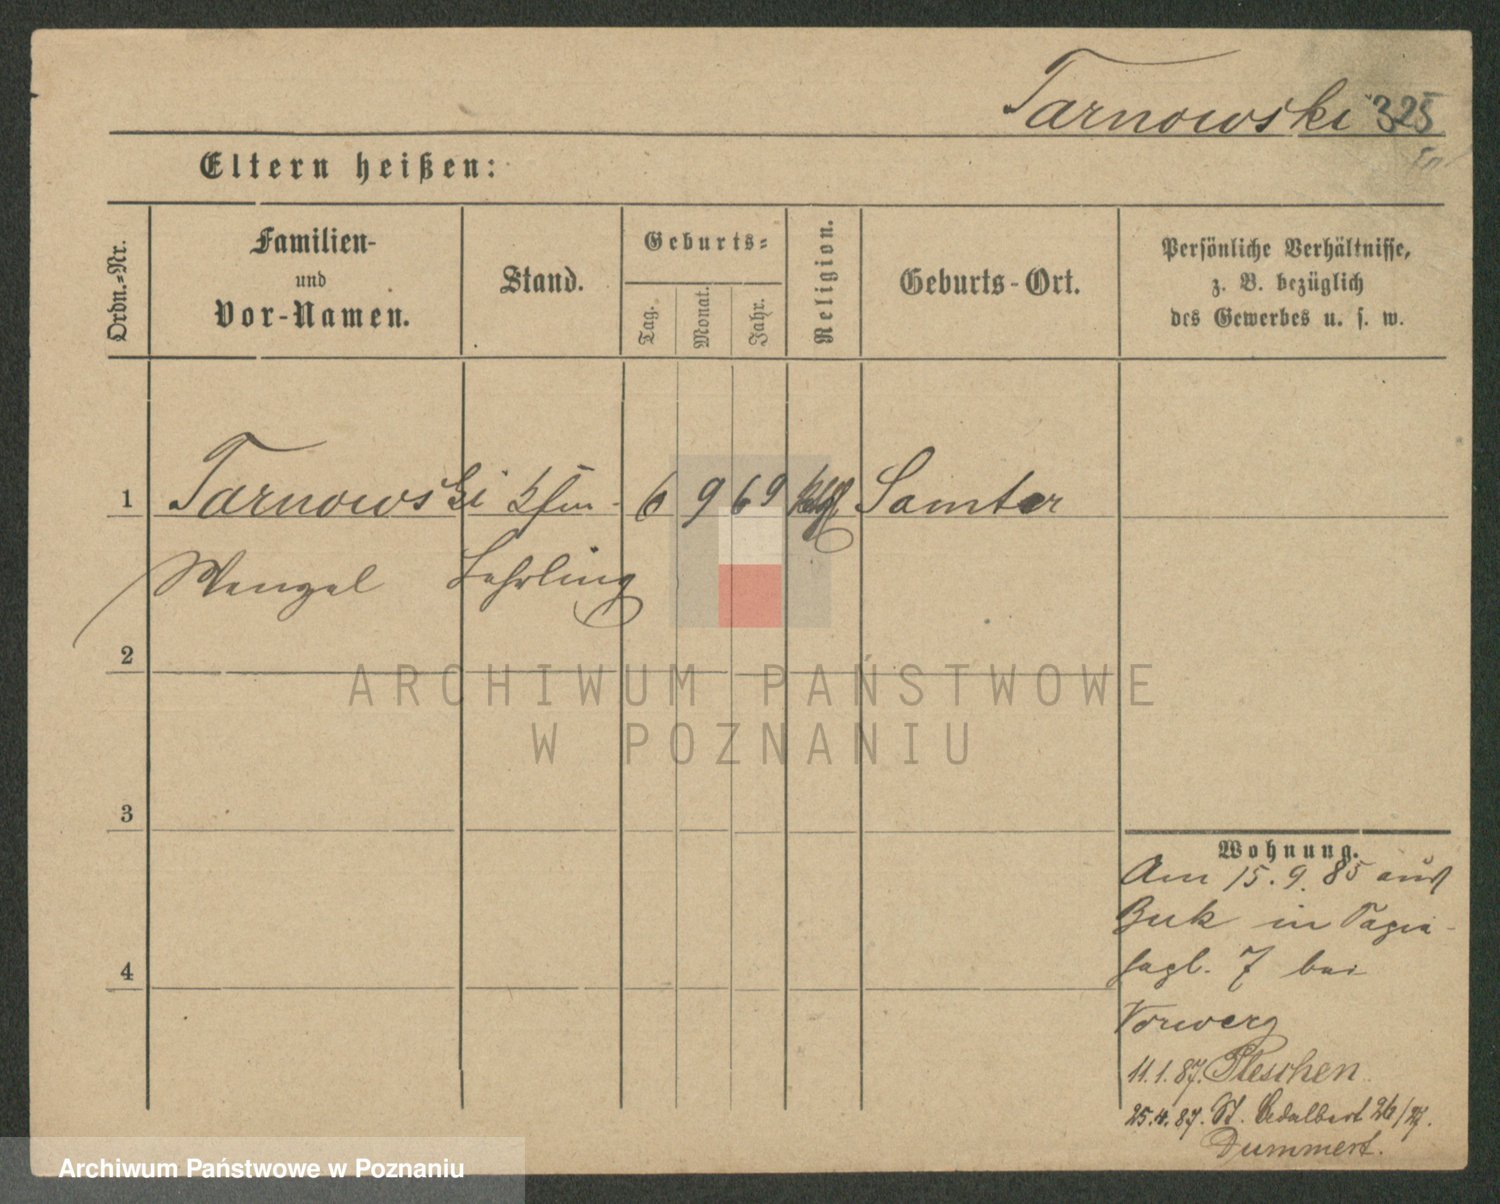 Tarnowski 325
Eltern heißen:
Ordn.=Nr.
Familien-
und
Vor-Namen.
Stand.
Geburts=
Tag.
Monat.
Jahr.
Religion.
Geburts-Ort.
Persönliche Verhältnisse,
z. B. bezüglich
des Gewerbes u. s. w.
1 Tarnowski Kfm- 6 9 69 Samter
Wenzel Lehrling
2
3
4
Wohnung.
Am 15.9.85 aus
Buk in
7 bei
Vorwerg
11.1.87. Pleschen
25.4.87. St. Adalbert 26/27.
Dummert.
ARCHIWUM PAŃSTWOWE
W POZNANIU
Archiwum Państwowe w Poznaniu